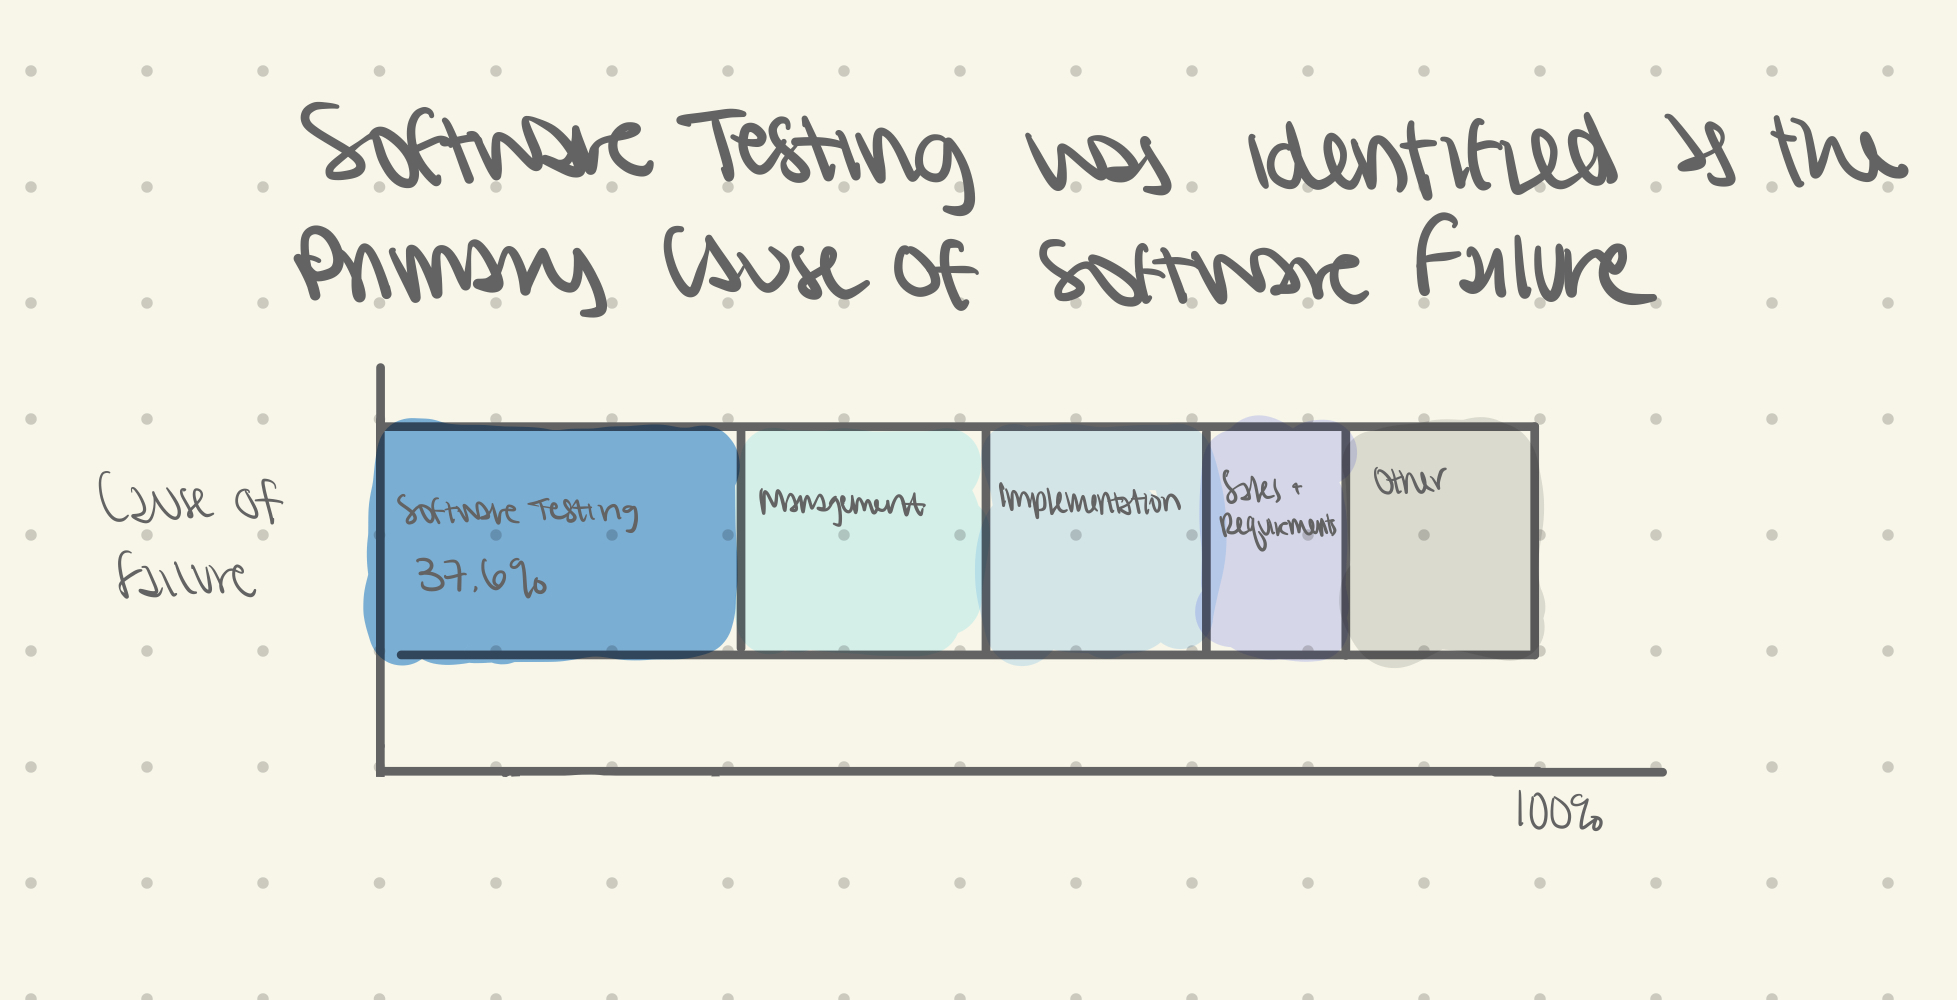 Software Testing was identified as the
Primary Cause of Software Failure
Cause of
Failure
Software Testing
37.6%
Management
Implementation
Sales +
Requirments
Other
100%